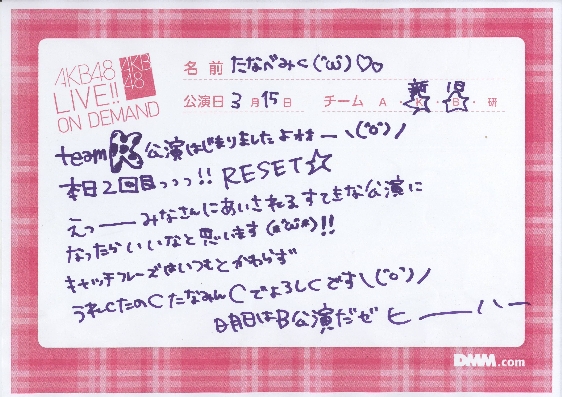 AKB48
LIVE!!
ON DEMAND
AKB
48
名前 たなべみく(´ω`)♡♡
公演日 3月15日 チーム A 新☆K 旧☆B・研
teamK公演はじまりましたよねー\(°o°)/
本日2回目っっっ!! RESET☆
えっーーみなさんにあいされるすてきな公演に
なったらいいなと思います(*´ω`*)!!
キャッチフレーズはいつもとかわらず
うれCたのCたなみんCでよろしCです\(°o°)/
明日はB公演だぜ ヒーーハー
DMM.com